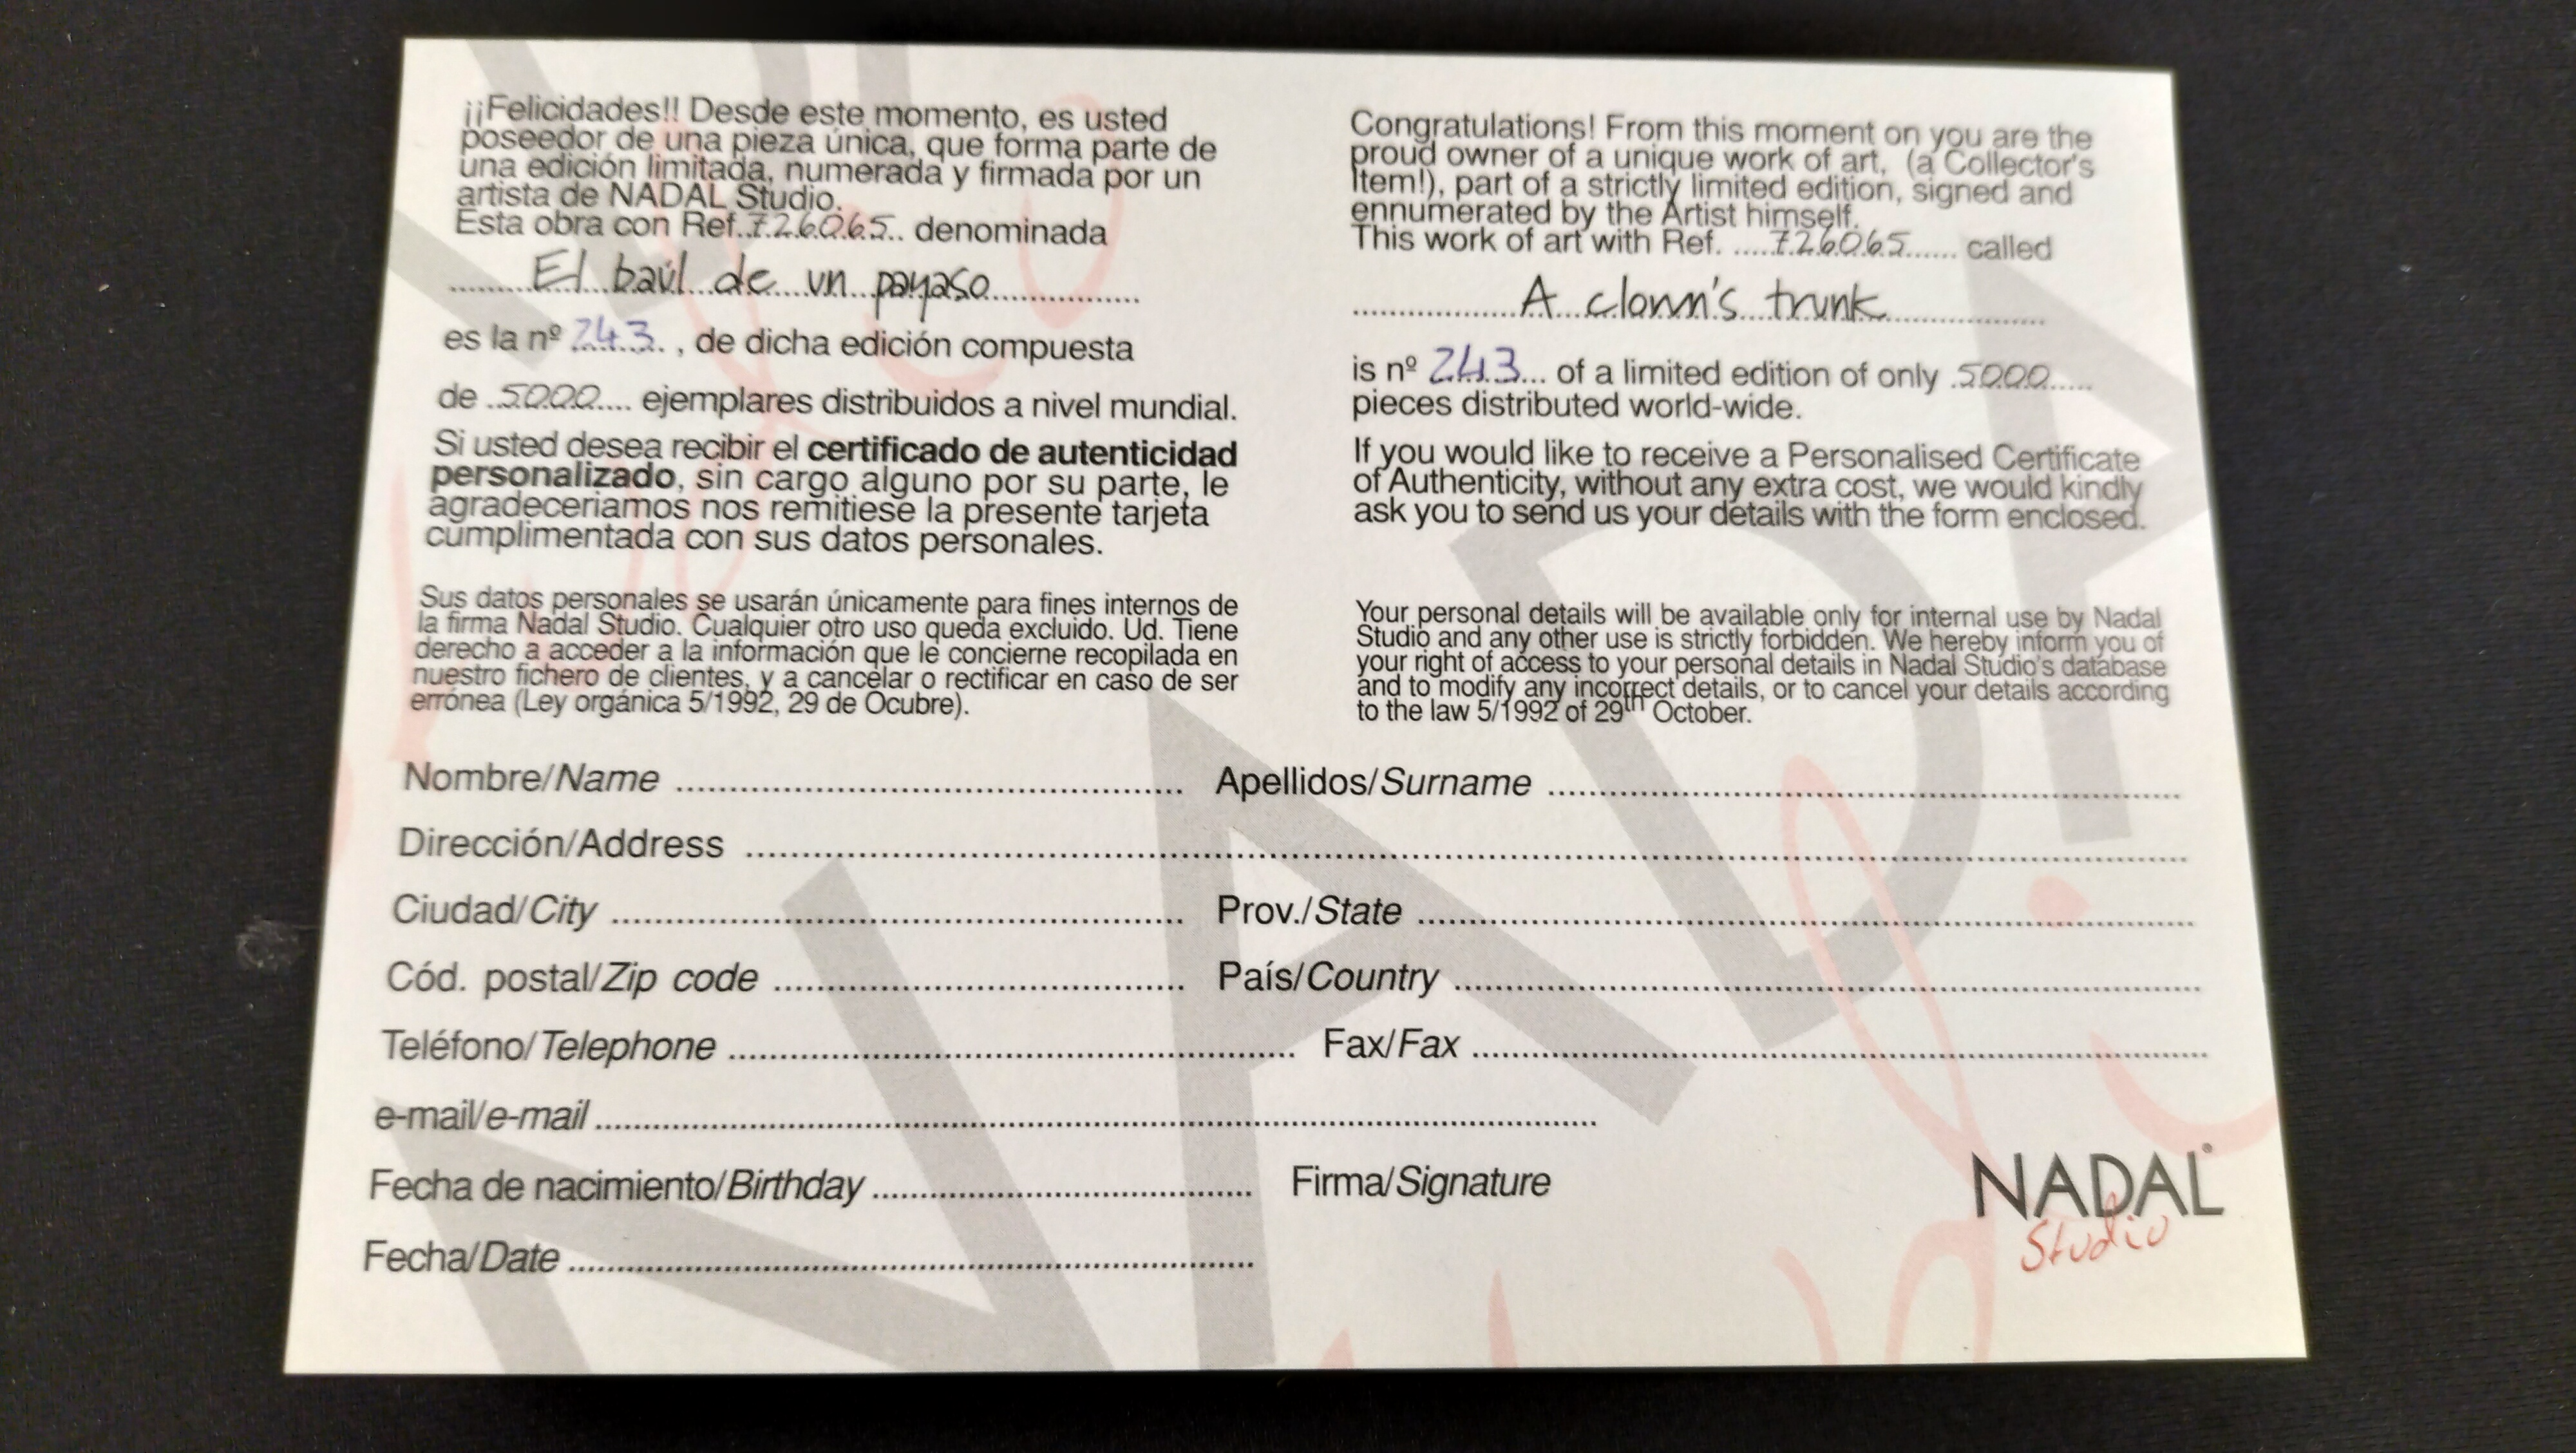 ¡¡Felicidades!! Desde este momento, es usted
poseedor de una pieza única, que forma parte de
una edición limitada, numerada y firmada por un
artista de NADAL Studio.
Esta obra con Ref..726065.. denominada
El baúl de un payaso
es la nº 243 , de dicha edición compuesta
de 5000 ejemplares distribuidos a nivel mundial.
Si usted desea recibir el certificado de autenticidad
personalizado, sin cargo alguno por su parte, le
agradeceriamos nos remitiese la presente tarjeta
cumplimentada con sus datos personales.
Sus datos personales se usarán únicamente para fines internos de
la firma Nadal Studio. Cualquier otro uso queda excluido. Ud. Tiene
derecho a acceder a la información que le concierne recopilada en
nuestro fichero de clientes, y a cancelar o rectificar en caso de ser
errónea (Ley orgánica 5/1992, 29 de Ocubre).
Congratulations! From this moment on you are the
proud owner of a unique work of art, (a Collector's
Item!), part of a strictly limited edition, signed and
ennumerated by the Artist himself.
This work of art with Ref. .....726065...... called
A clown's trunk
is nº 243... of a limited edition of only .5000.....
pieces distributed world-wide.
If you would like to receive a Personalised Certificate
of Authenticity, without any extra cost, we would kindly
ask you to send us your details with the form enclosed.
Your personal details will be available only for internal use by Nadal
Studio and any other use is strictly forbidden. We hereby inform you of
your right of access to your personal details in Nadal Studio's database
and to modify any incorrect details, or to cancel your details according
to the law 5/1992 of 29th October.
Nombre/Name Apellidos/Surname
Dirección/Address
Ciudad/City Prov./State
Cód. postal/Zip code País/Country
Teléfono/Telephone Fax/Fax
e-mail/e-mail
Fecha de nacimiento/Birthday Firma/Signature
Fecha/Date
NADAL
Studio